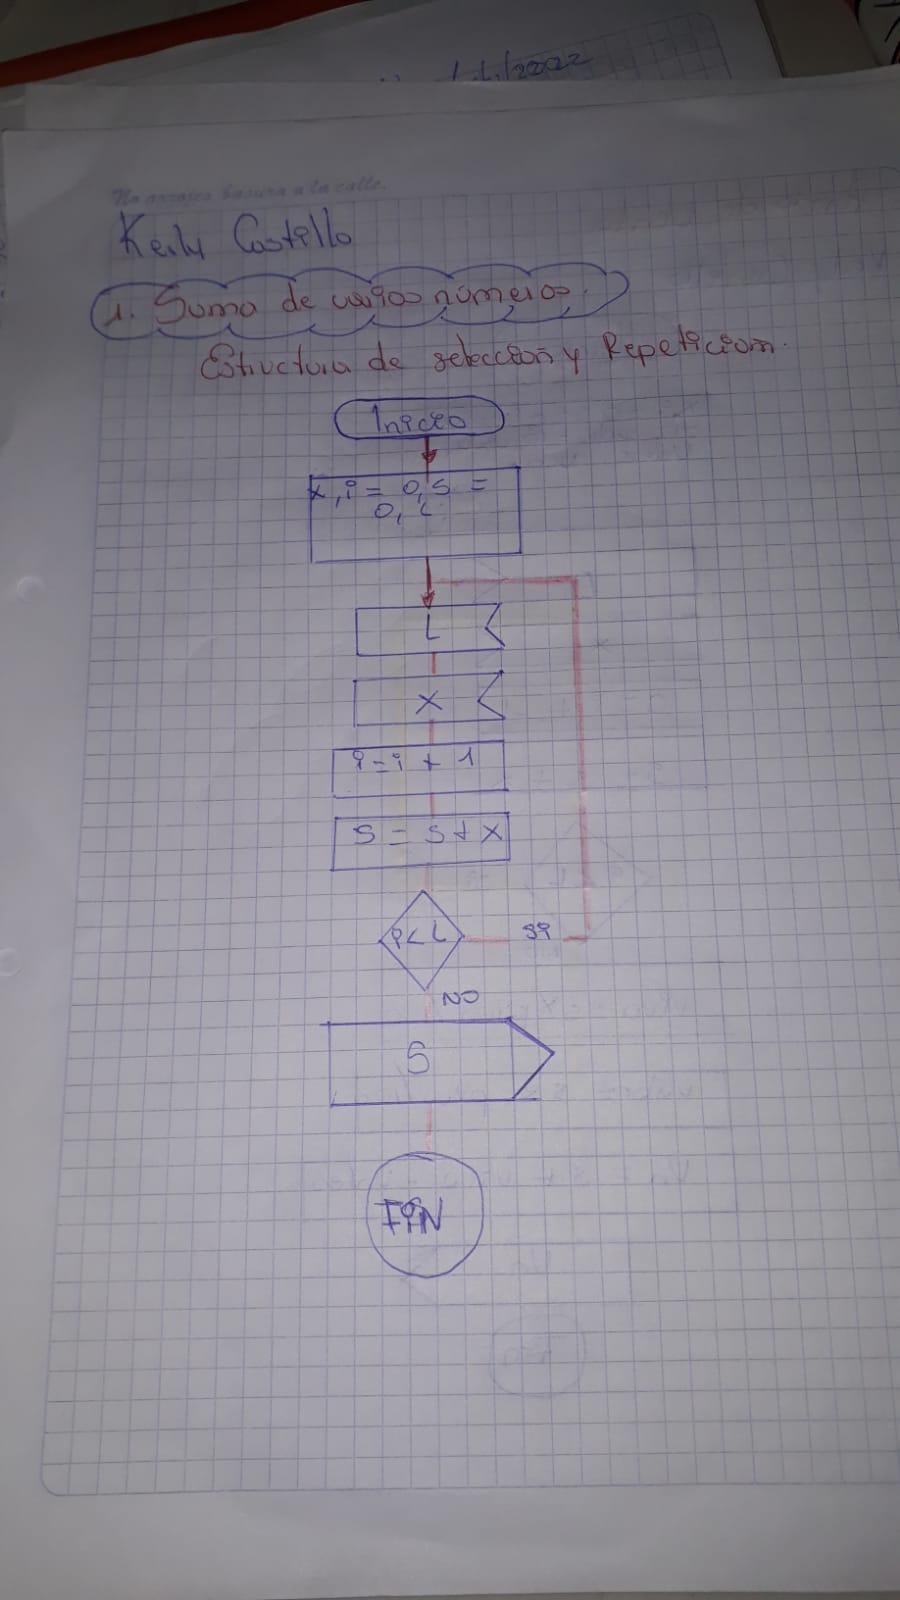 /2022
No arrojes basura a la calle.
Kerly Castillo
1. Suma de varios números.
Estructura de selección y Repeticiom.
Inicio
x, i = 0, s =
0, L
L
X
i = i + 1
S = S + X
i < L
si
NO
S
FIN